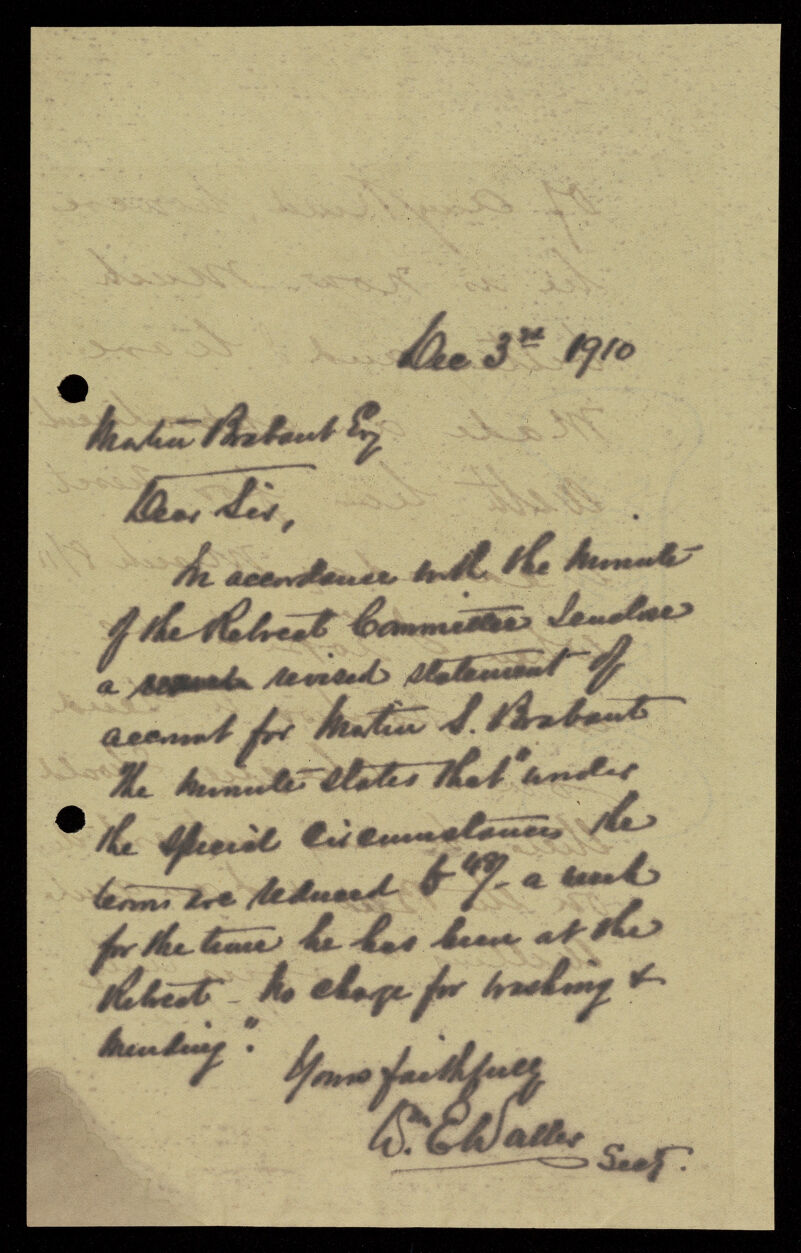 Dec 3rd 1910
Martin Brabant Esq
Dear Sir,
In accordance with the Minute
of the Retreat Committee I enclose
a revised statement of
account for Martin S. Brabant
The Minute states that "under
the special circumstances the
terms are reduced to a week
for the time he has been at the
Retreat - No charge for washing &
mending".
Yours faithfully
Wm. E Waller
Secy.